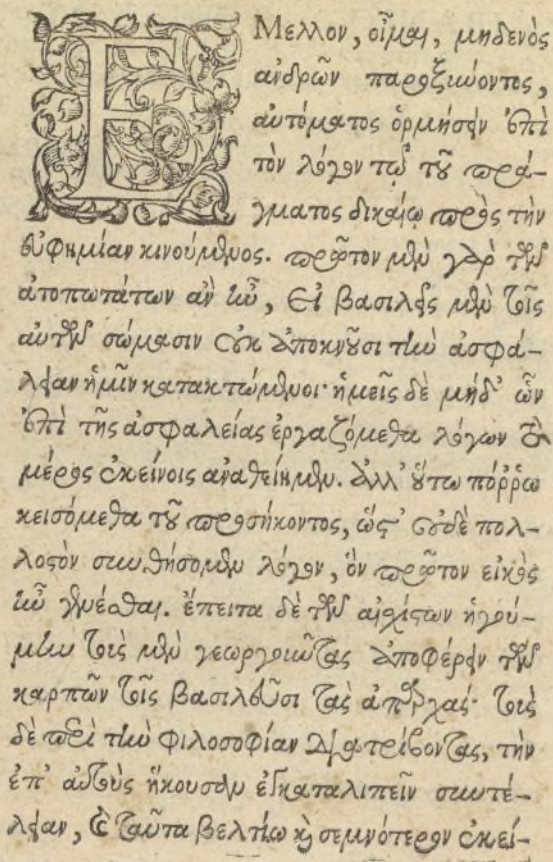 ΕΜελλον, οἶμαι, μηδενὸς
ἀνδρῶν παροξιώοντος,
αὐτόματος ὁρμήσειν ἐπὶ
τὸν λόγον τῷ τοῦ πρά-
γματος δικαίῳ πρὸς τὴν
εὐφημίαν κινούμενος. πρῶτον μὲν γὰρ τῶν
ἀτοπωτάτων ἂν ἦν, εἰ βασιλεῖς μὲν τοῖς
αὐτῶν σώμασιν οὐκ ἀποκνοῦσι τὴν ἀσφά-
λειαν ἡμῖν κατακτώμενοι· ἡμεῖς δὲ μηδ' ὧν
ἐπὶ τῆς ἀσφαλείας ἐργαζόμεθα λόγων τὸ
μέρος ἐκείνοις ἀναθείημεν. ἀλλ' οὕτω πόῤῥω
κεισόμεθα τοῦ προσήκοντος, ὥστ' οὐδὲ πολ-
λοστὸν συνθήσομεν λόγον, ὃν πρῶτον εἰκὸς
ἦν γενέσθαι. ἔπειτα δὲ τῶν αἰσχίστων ἡγού-
μην τοὺς μὲν γεωργοιῶτας ἀποφέρειν τῶν
καρπῶν τοῖς βασιλεῦσι τὰς ἀπαρχάς· τοὺς
δὲ περὶ τὴν φιλοσοφίαν διατρίβοντας, τὴν
ἐπ' αὐτοὺς ἥκουσαν ἐγκαταλιπεῖν συντέ-
λειαν, καὶ ταῦτα βελτίω καὶ σεμνότερον ἐκεί-